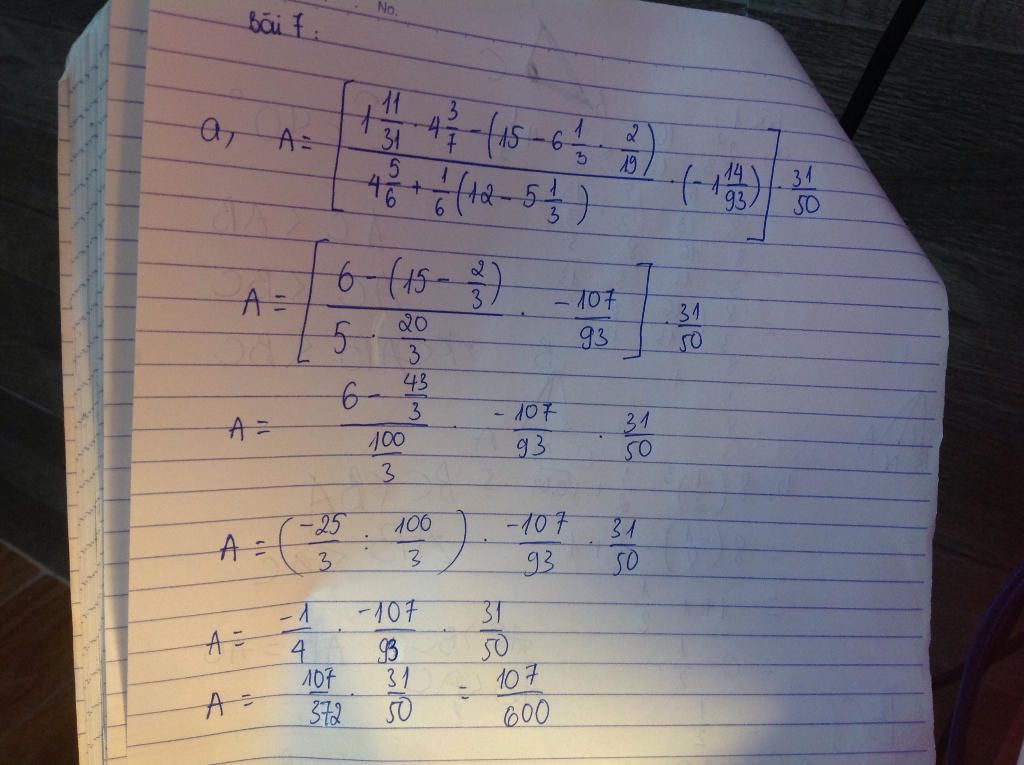 No.
Bài 7:
a, A = [ (1 11/31 · 4 3/7 − (15 − 6 1/3 · 2/19)) / (4 5/6 + 1/6 (12 − 5 1/3)) · (−1 14/93) ] · 31/50
A = [ (6 − (15 − 2/3)) / (5 · 20/3) · −107/93 ] · 31/50
A = (6 − 43/3) / (100/3) · −107/93 · 31/50
A = (−25/3 : 100/3) · −107/93 · 31/50
A = −1/4 · −107/93 · 31/50
A = 107/372 · 31/50 = 107/600